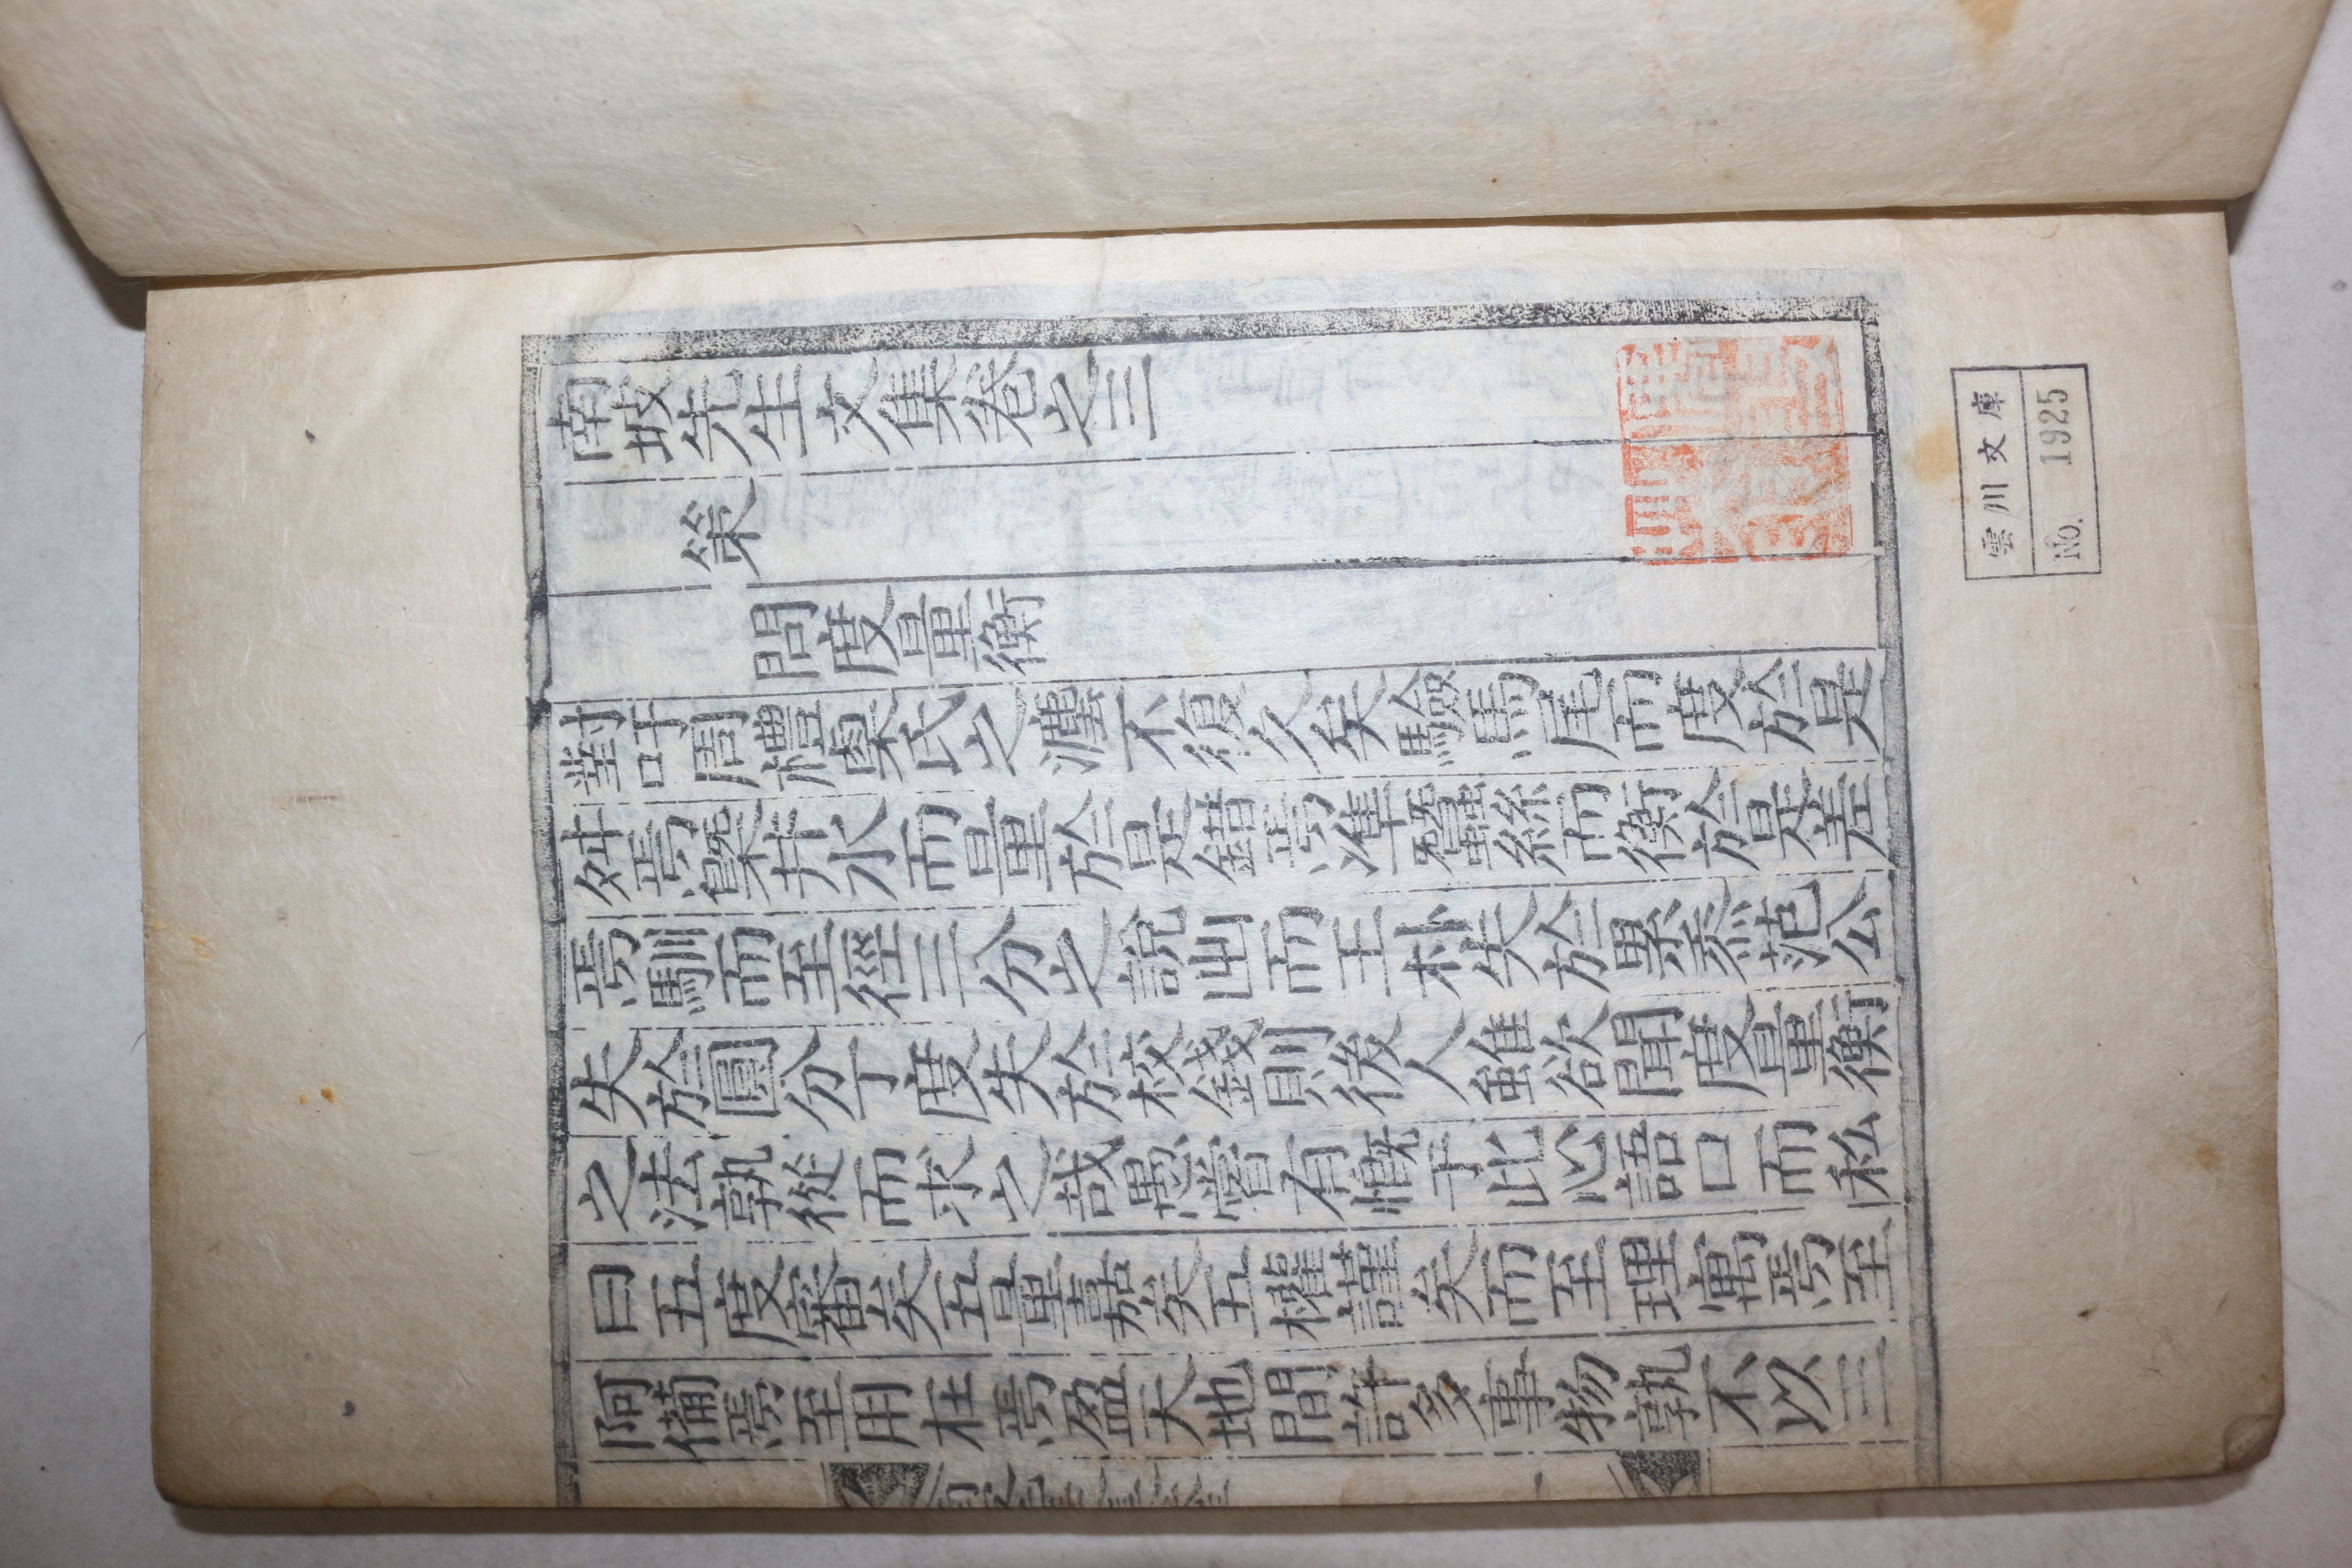 南坡先生文集卷之三
策
問度量衡
對吁周禮㮚氏之灋不復久矣驗馬尾而度於是
舛焉槩井水而量於是錯焉準蠶絲而衡於是差
焉馴而至徑三分之說出而王朴失於累黍范公
失於圜分丁度失於校錢則後人雖欲聞度量衡
之法孰從而求之哉愚嘗有慨于此心語口而私
曰五度審矣五量嘉矣五權謹矣而至理寓焉至
阿備焉至用在焉盈天地間許多事物孰不以三
雲川文庫
No. 1925